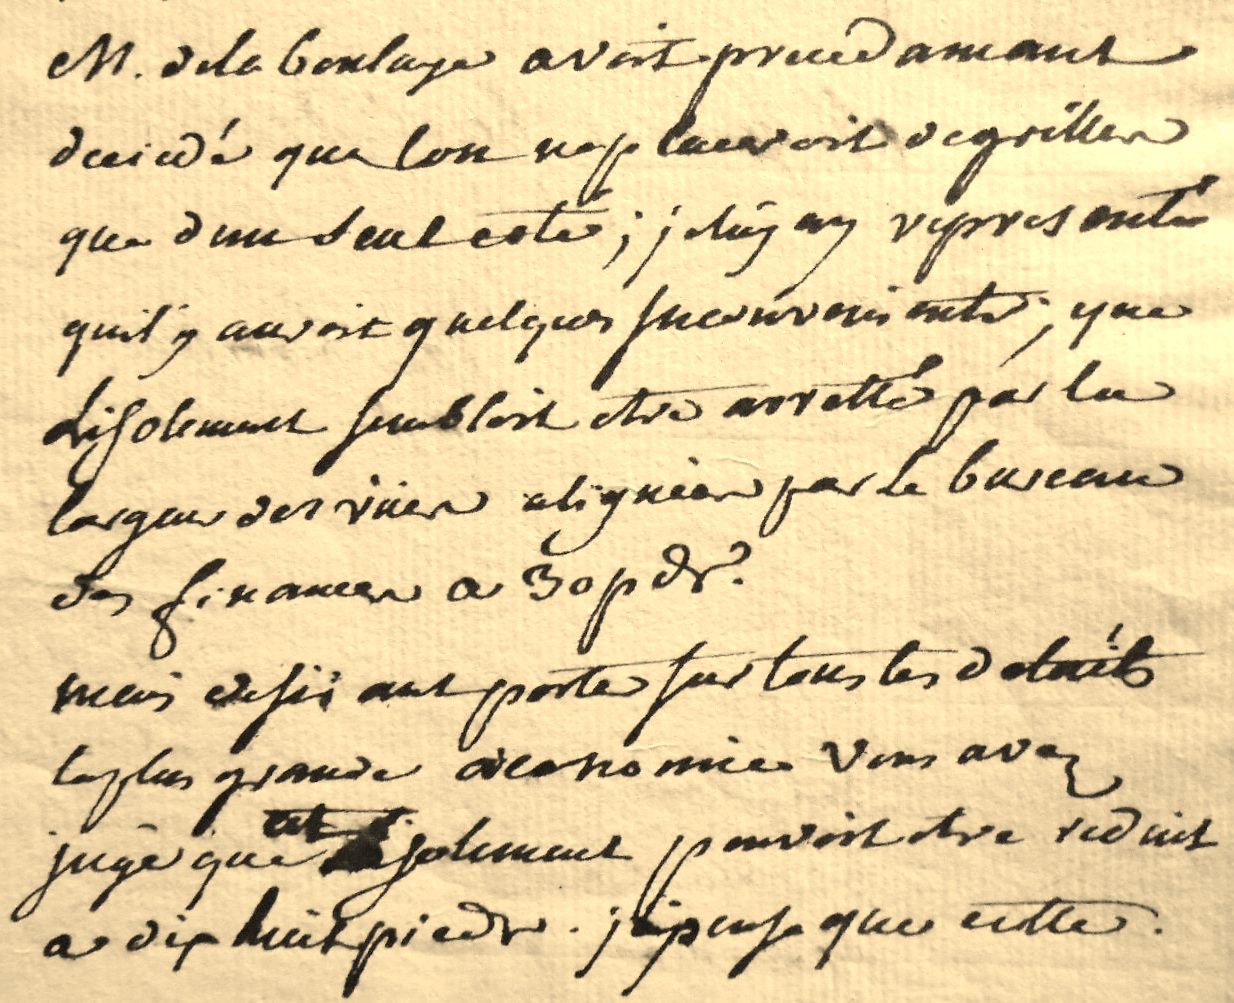 M. dela boulaye avoit precedamant
decidé que lon neplaceroit degrilles
que dun seul coté; jeluy ay representé
quil y auroit quelques inconvenients; que
lisolement sembloit etre arretté par la
largeur des rües alignées par le bureau
des finances a 30 pds.
mais desirant porter sur tous les details
laplus grande œconomie vous avez
jugé que cet isolement pouvoit etre reduit
a dix huit pieds. jepense que cette